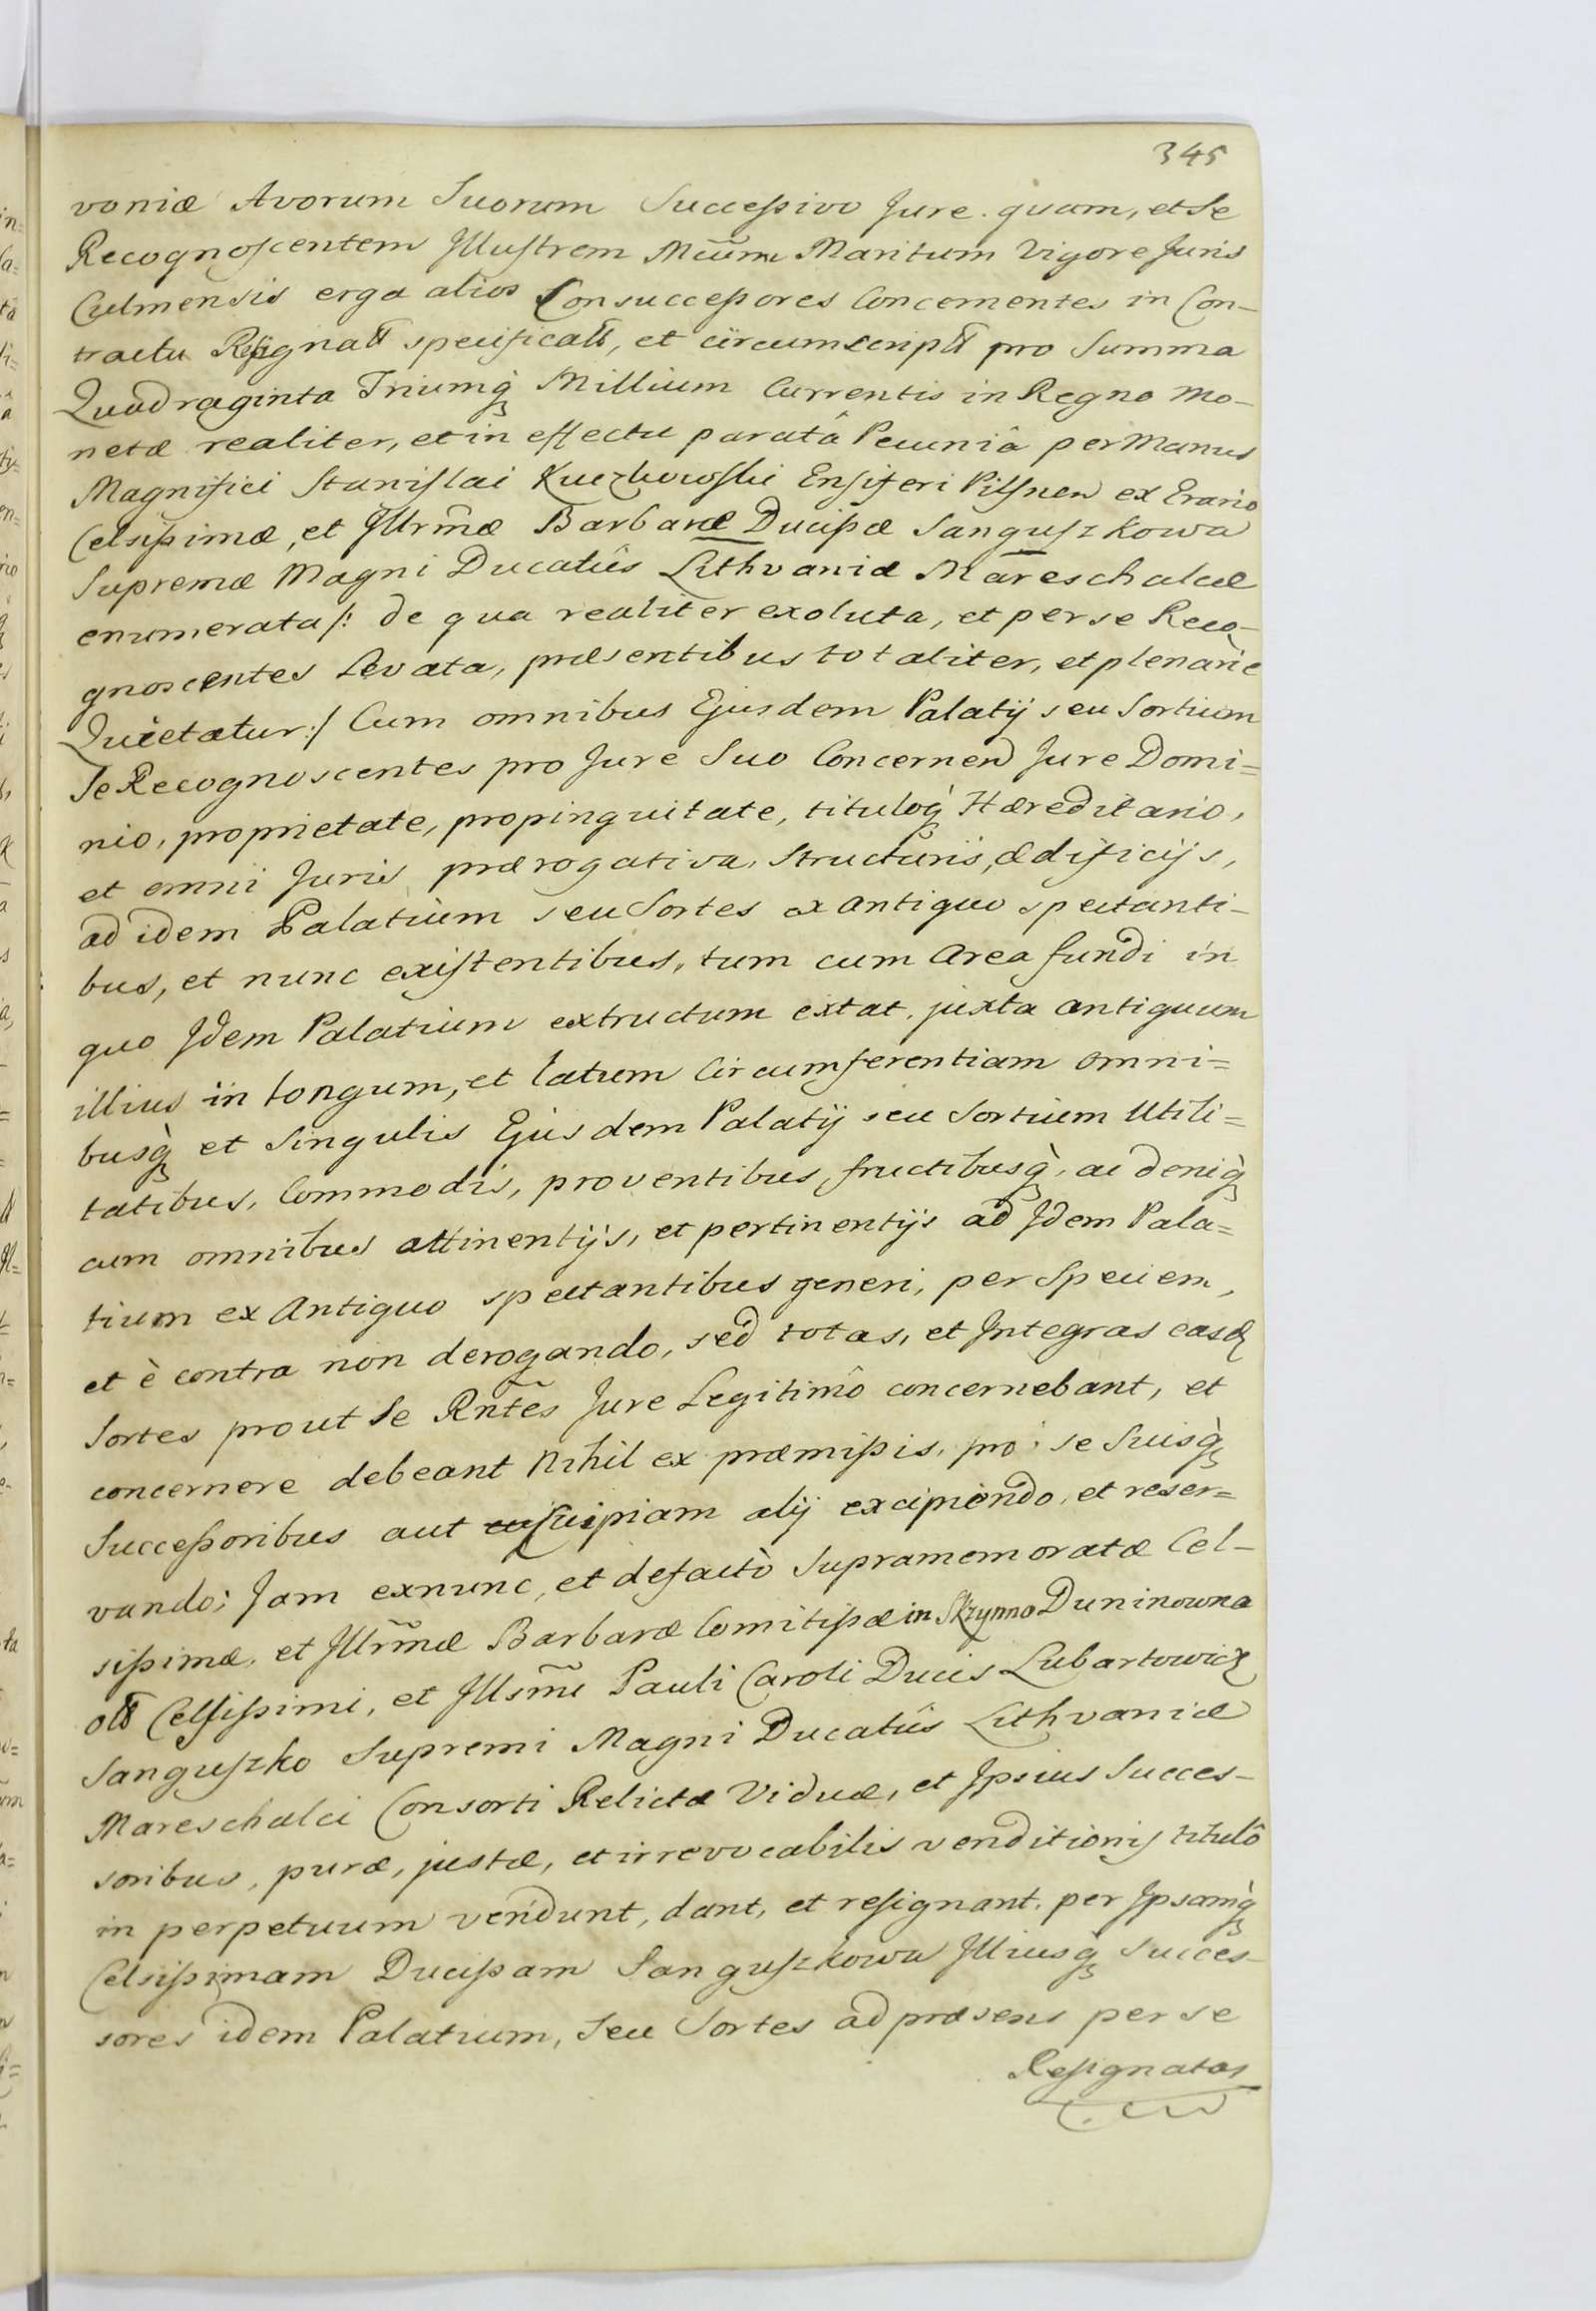 345
voniæ Avorum Suorum Successivo Jure quam, et Se
Recognoscentem Illustrem Mcum̃ Maritum Vigore Juris
Culmensis erga alios Consuccessores Concernentes in Con-
tractu Resignatt specificatt, et circumscriptt pro Summa
Quadraginta Triumq̀ Millium Currentis in Regno Mo-
netæ realiter, et in effectu paratâ Pecuniâ per Manus
Magnifici Stanislai Kuczkowski Ensiferi Pilsnen ex Erario
Celsissimæ, et Illrm̃æ Barbaræ Ducissæ Sanguszkowa
Supremæ Magni Ducatûs Lithvaniæ Mareschalcæ
enumerata /: de qua realiter exoluta, et per se Reco-
gnoscentes Levata, præsentibus totaliter, et plenariè
Quietatur :/ Cum omnibus Ejusdem Palatij seu Sortium
Se Recognoscentes pro Jure Suo Concernen Jure Domi=
nio, proprietate, propinquitate, tituloq̀ Hæreditario,
et omni Juris prærogativa, Structuris, ædificijs,
ad idem Palatium seu Sortes ex antiquo spectanti-
bus, et nunc existentibus, tum cum Area fundi in
quo Idem Palatium extructum extat, juxta antiquum
illius in longum, et latum Circumferentiam omni=
busq̀ et Singulis Ejusdem Palatij seu Sortium Utili=
tatibus, Commodis, proventibus, fructibusq̀, ac deniq̀
cum omnibus attinentijs, et pertinentijs ad Idem Pala=
tium ex Antiquo spectantibus generi, per Speciem,
et è contra non derogando, sed totas, et Integras easd
Sortes prout Se Rñtẽs Jure Legitimô concernebant, et
concernere debeant Nihil ex præmissis, pro se Suisq̀
Successoribus aut cuipiam alij excipiendo, et reser=
vando; Jam exnunc, et defactò Supramemoratæ Cel-
sissimæ, et Illrm̃æ Barbaræ Comitissæ in Skrzynno Duninowna
olt Celsissimi, et Illsm̃i Pauli Caroli Ducis Lubartowicz
Sanguszko Supremi Magni Ducatûs Lithvaniæ
Mareschalci Consorti Relictæ Viduæ, et Ipsius Succes-
soribus, puræ, justæ, et irrevocabilis venditionis titulô
in perpetuum vendunt, dant, et resignant, per Ipsamq̀
Celsissimam Ducissam Sanguszkowa Illiusq̀ Succes-
sores idem Palatium, Seu Sortes ad præsens per se
Resignatas